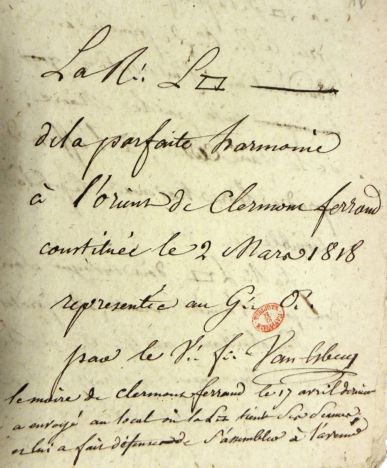 La R∴ L▭▭
de la parfaite harmonie
à l'orient de Clermont ferrand
constituée le 2 Mars 1818
representée au G∴ O∴
par le V∴ f∴
le maire de Clermont ferrand le 17 avril dernier
a envoyé au local où la L▭▭ tient Ses
et lui a fait défense de S'assembler à l'avenir